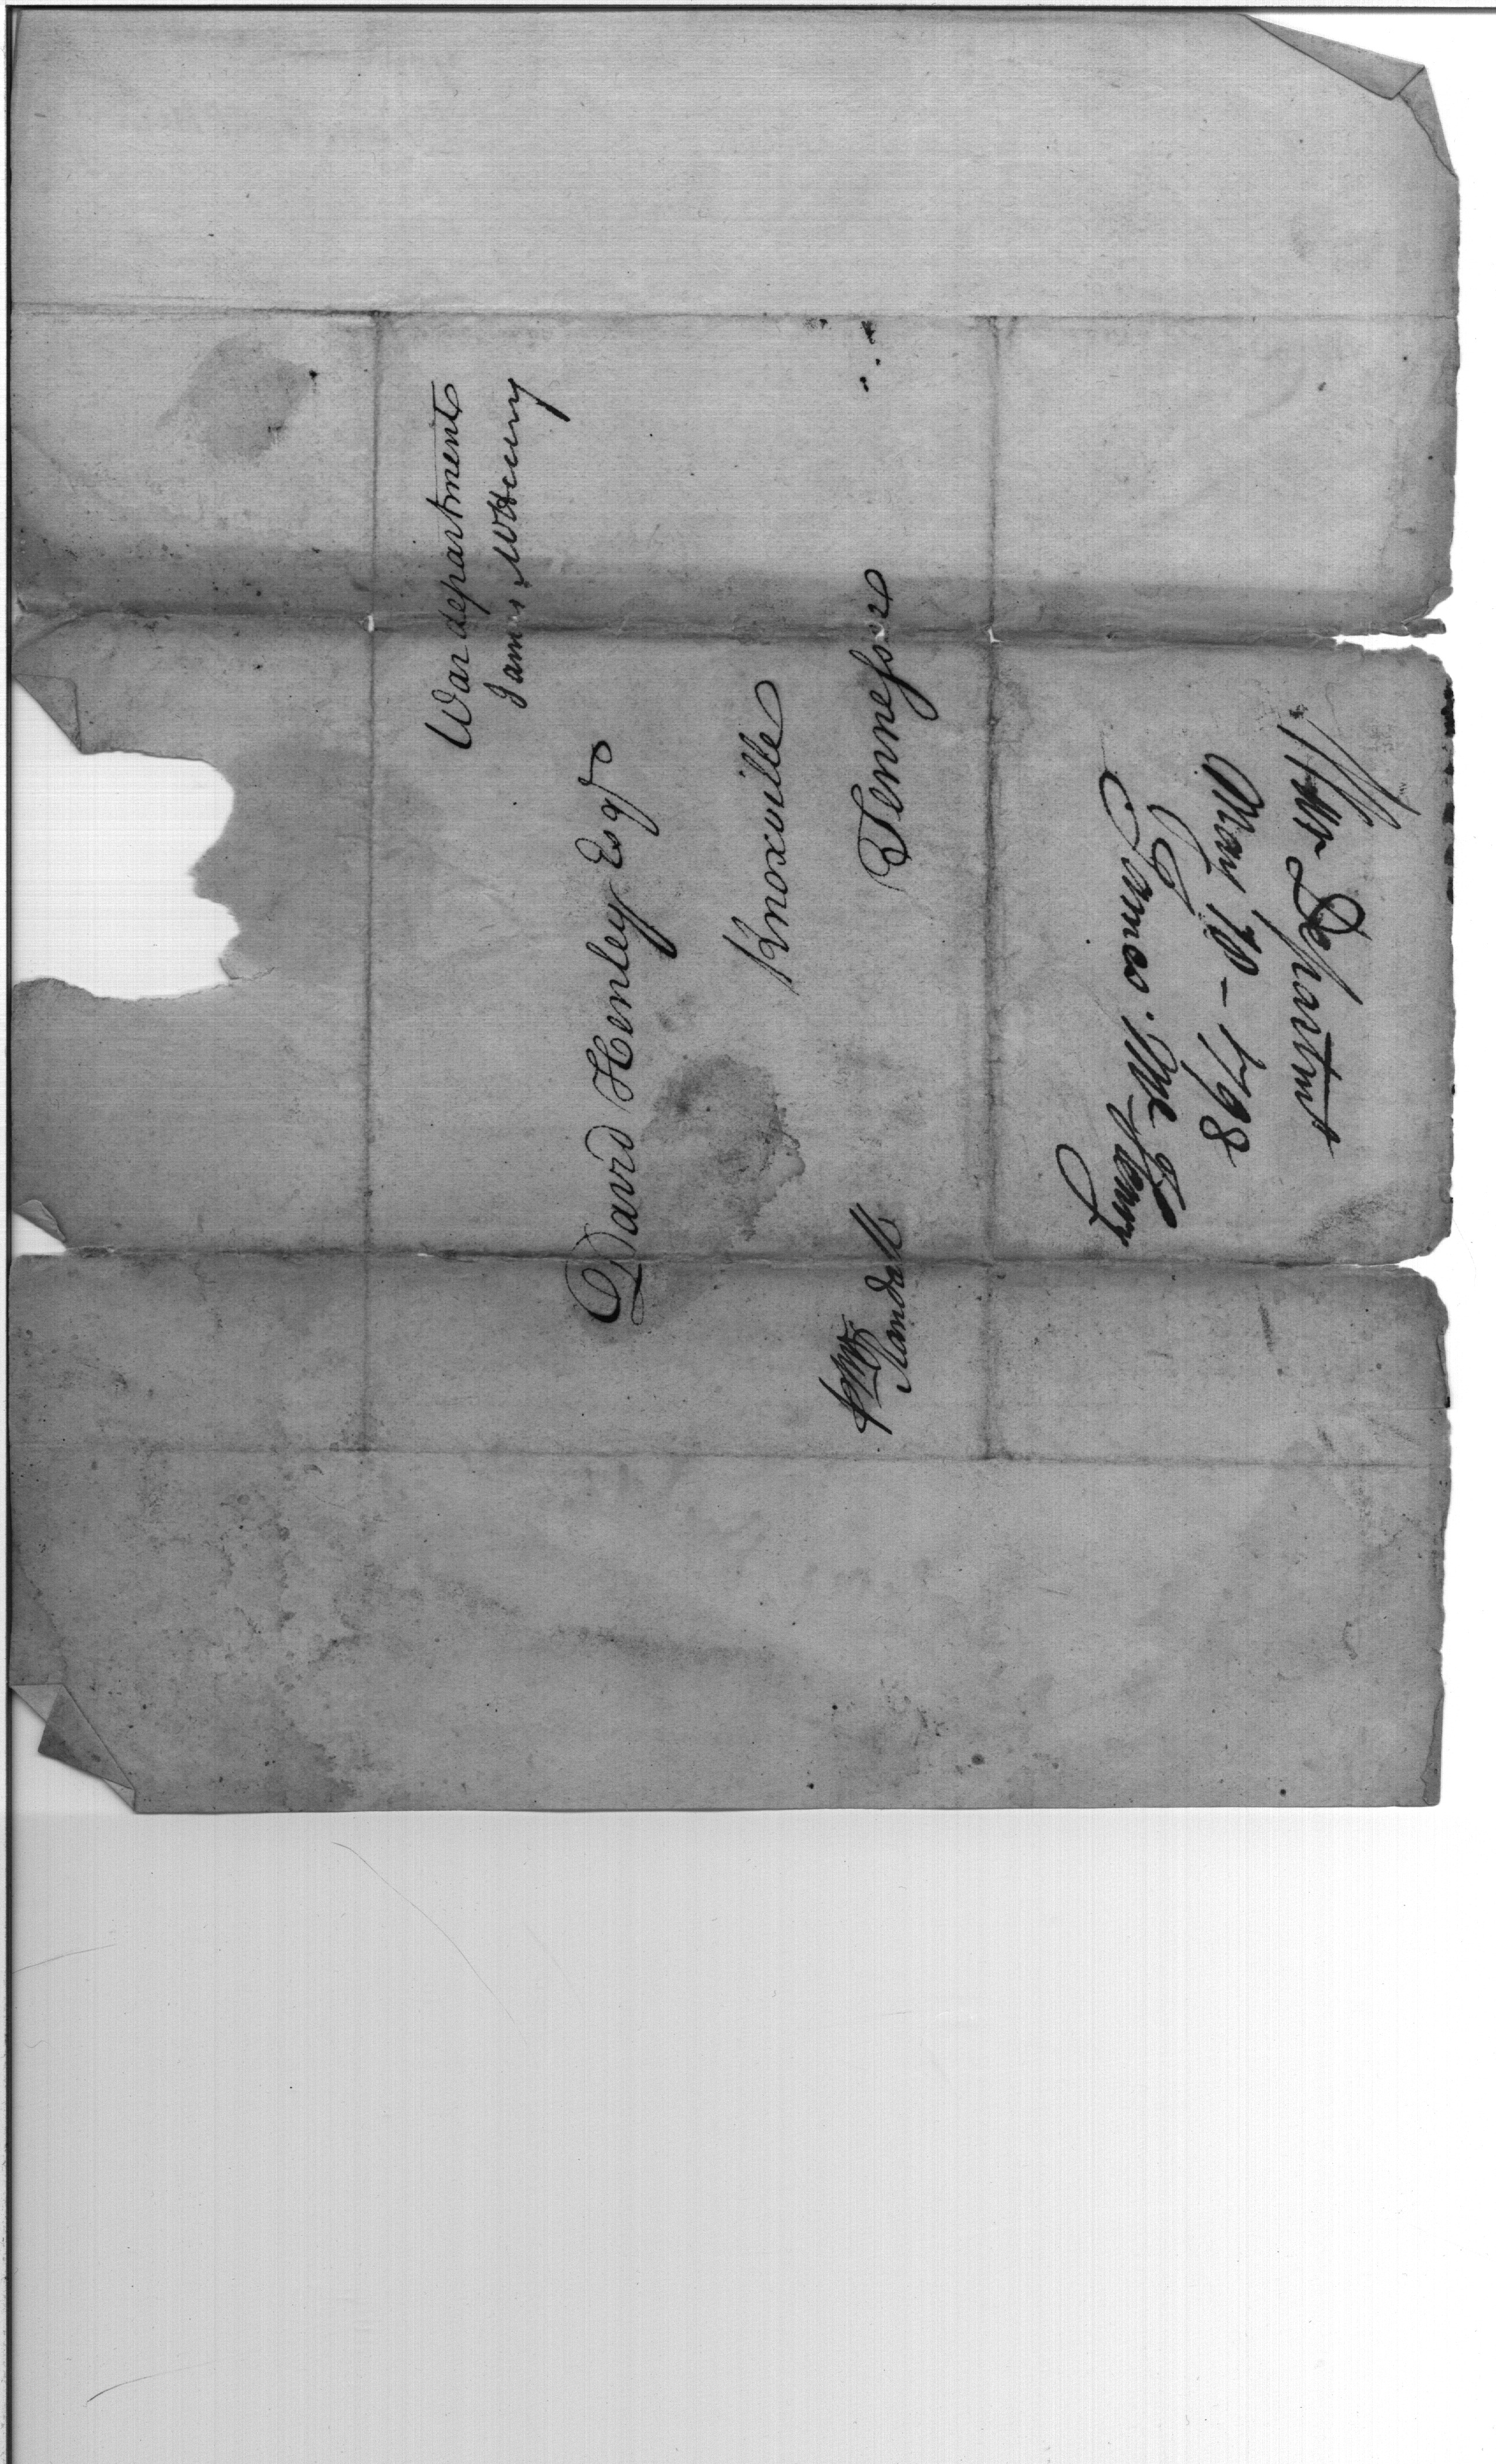 War department
James McHenry
David Henley Esqr
Knoxville
Tennessee
Randall
War Departmt
May 10 - 1798
James McHenry